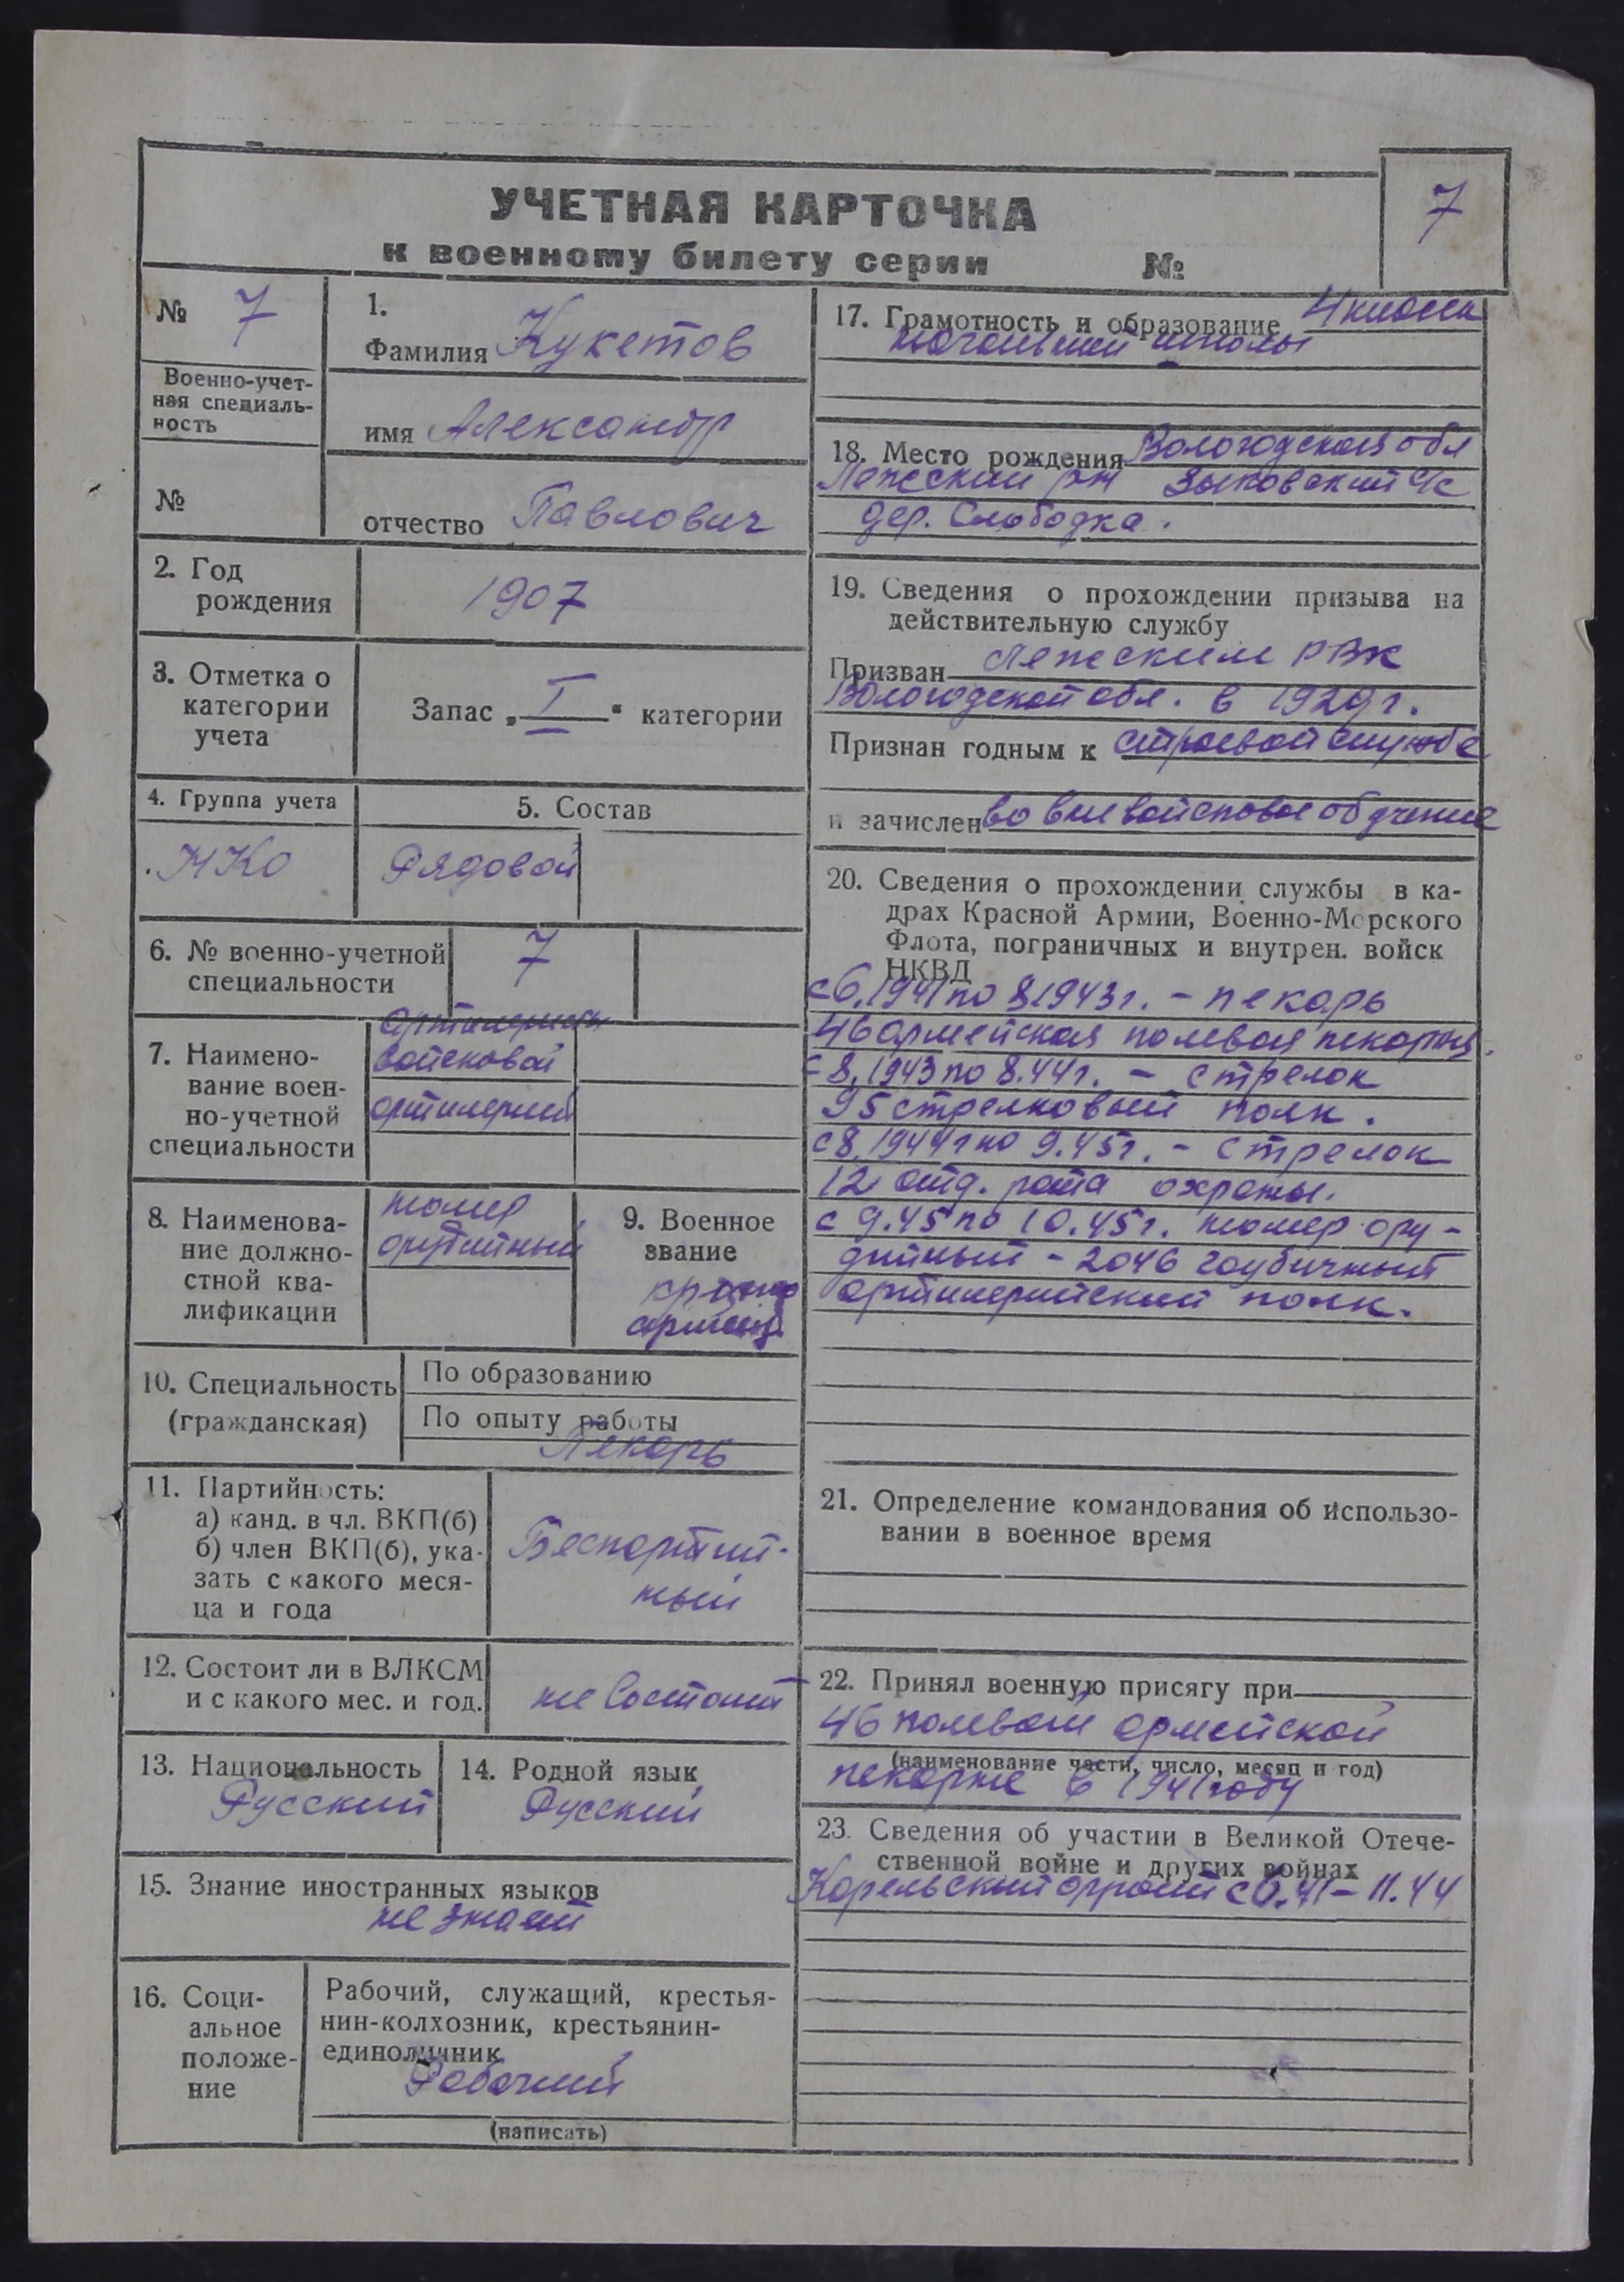 УЧЕТНАЯ КАРТОЧКА
к военному билету серии №
7
№ 7
Военно-учет-
ная специаль-
ность
№
1.
Фамилия Кукетов
имя Александр
отчество Павлович
2. Год
рождения
1907
3. Отметка о
категории
учета
Запас „ I “ категории
4. Группа учета
НКО
5. Состав
Рядовой
6. № военно-учетной
специальности
7
7. Наимено-
вание воен-
но-учетной
специальности
войсковой
артилерии
8. Наименова-
ние должно-
стной ква-
лификации
номер
орудийный
9. Военное
звание
красно
армеец
10. Специальность
(гражданская)
По образованию
По опыту работы
Пекарь
11. Партийность:
а) канд. в чл. ВКП(б)
б) член ВКП(б), ука-
зать с какого меся-
ца и года
Беспартий-
ный
12. Состоит ли в ВЛКСМ
и с какого мес. и год.
не состоит
13. Национальность
Русский
14. Родной язык
Русский
15. Знание иностранных языков
не знает
16. Соци-
альное
положе-
ние
Рабочий, служащий, крестья-
нин-колхозник, крестьянин-
единоличник
Рабочий
(написать)
17. Грамотность и образование 4 класса
начальной школы
18. Место рождения Вологодская обл
Лежский рн Зыковский с/с
дер. Слободка.
19. Сведения о прохождении призыва на
действительную службу
Призван Лежским РВК
Вологодской обл. в 1929 г.
Признан годным к строевой службе
и зачислен во вневойсковое обучение
20. Сведения о прохождении службы в ка-
драх Красной Армии, Военно-Морского
Флота, пограничных и внутрен. войск
НКВД
с 6.1941 по 8.1943 г. - пекарь
46 армейская полевая пекарня.
с 8.1943 по 8.44 г. - стрелок
95 стрелковый полк.
с 8.1944 г по 9.45 г. - стрелок
12 отд. рота охраны.
с 9.45 по 10.45 г. номер ору-
дийный - 2046 гаубичный
артилерийский полк.
21. Определение командования об использо-
вании в военное время
22. Принял военную присягу при
46 полевой армейской
(наименование части, число, месяц и год)
пекарне в 1941 году
23. Сведения об участии в Великой Отече-
ственной войне и других войнах
Карельский фронт с 6.41 - 11.44